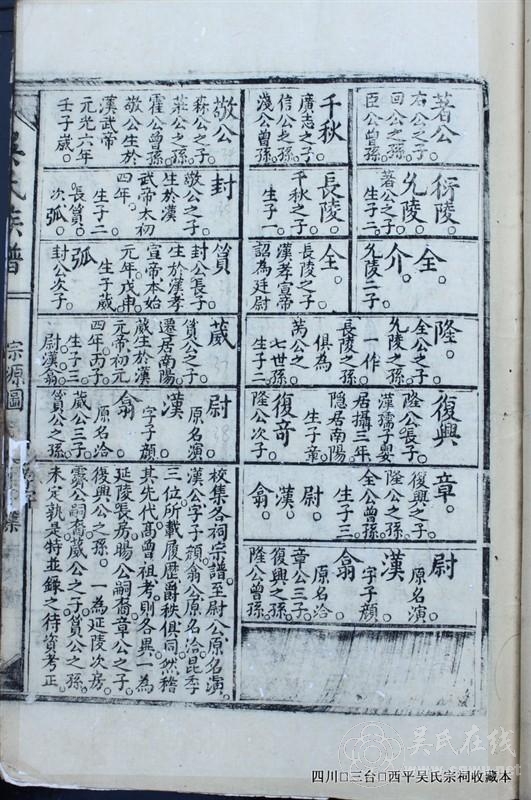 著公
右公之子
回公之孫
臣公曾孫
千秋
廣志之子
信公之孫
淺公曾孫
敬公
森公之子
莊公之孫
霍公曾孫
敬公生於
漢武帝
元光六年
壬子歲
衍陵
允陵
著公之子
生子二
長陵
千秋之子
生子一
封
敬公之子
生於漢
武帝太初
四年
生子二
長篔
次弧
仝
介
允陵二子
仝
長陵之子
漢孝宣帝
詔為廷尉
篔
封公長子
生於漢孝
宣帝本始
元年戊申
生子葳
弧
封公次子
隆
仝公之子
允陵之孫
一作
長陵之孫
俱為
萬公之
七世孫
生子二
葳
篔公之子
遷居南陽
葳生於漢
元帝初元
四年丙子
生子三
尉漢翕
復興
隆公長子
漢孺子嬰
居攝三年
隱居南陽
生子章
復奇
隆公次子
尉
原名演
漢
字子顏
翕
原名洽
葳公三子
篔公之孫
章
復興之子
隆公之孫
仝公曾孫
生子三
尉
漢
翕
尉
原名演
漢
字子顏
翕
原名洽
章公三子
復興之孫
隆公曾孫
校集各祠宗譜至尉公原名演
漢公字子顏翕公原名洽昆季
三位所載履歷爵秩俱同然稽
其先代高曾祖考則各異一為
延陵張房腸公嗣裔章公之子
復興公之孫一為延陵次房
霽公嗣裔葳公之子篔公之孫
未定孰是特並錄之待資考正
吳氏族譜
宗源圖
吴氏在线
四川□三台□西平吴氏宗祠收藏本